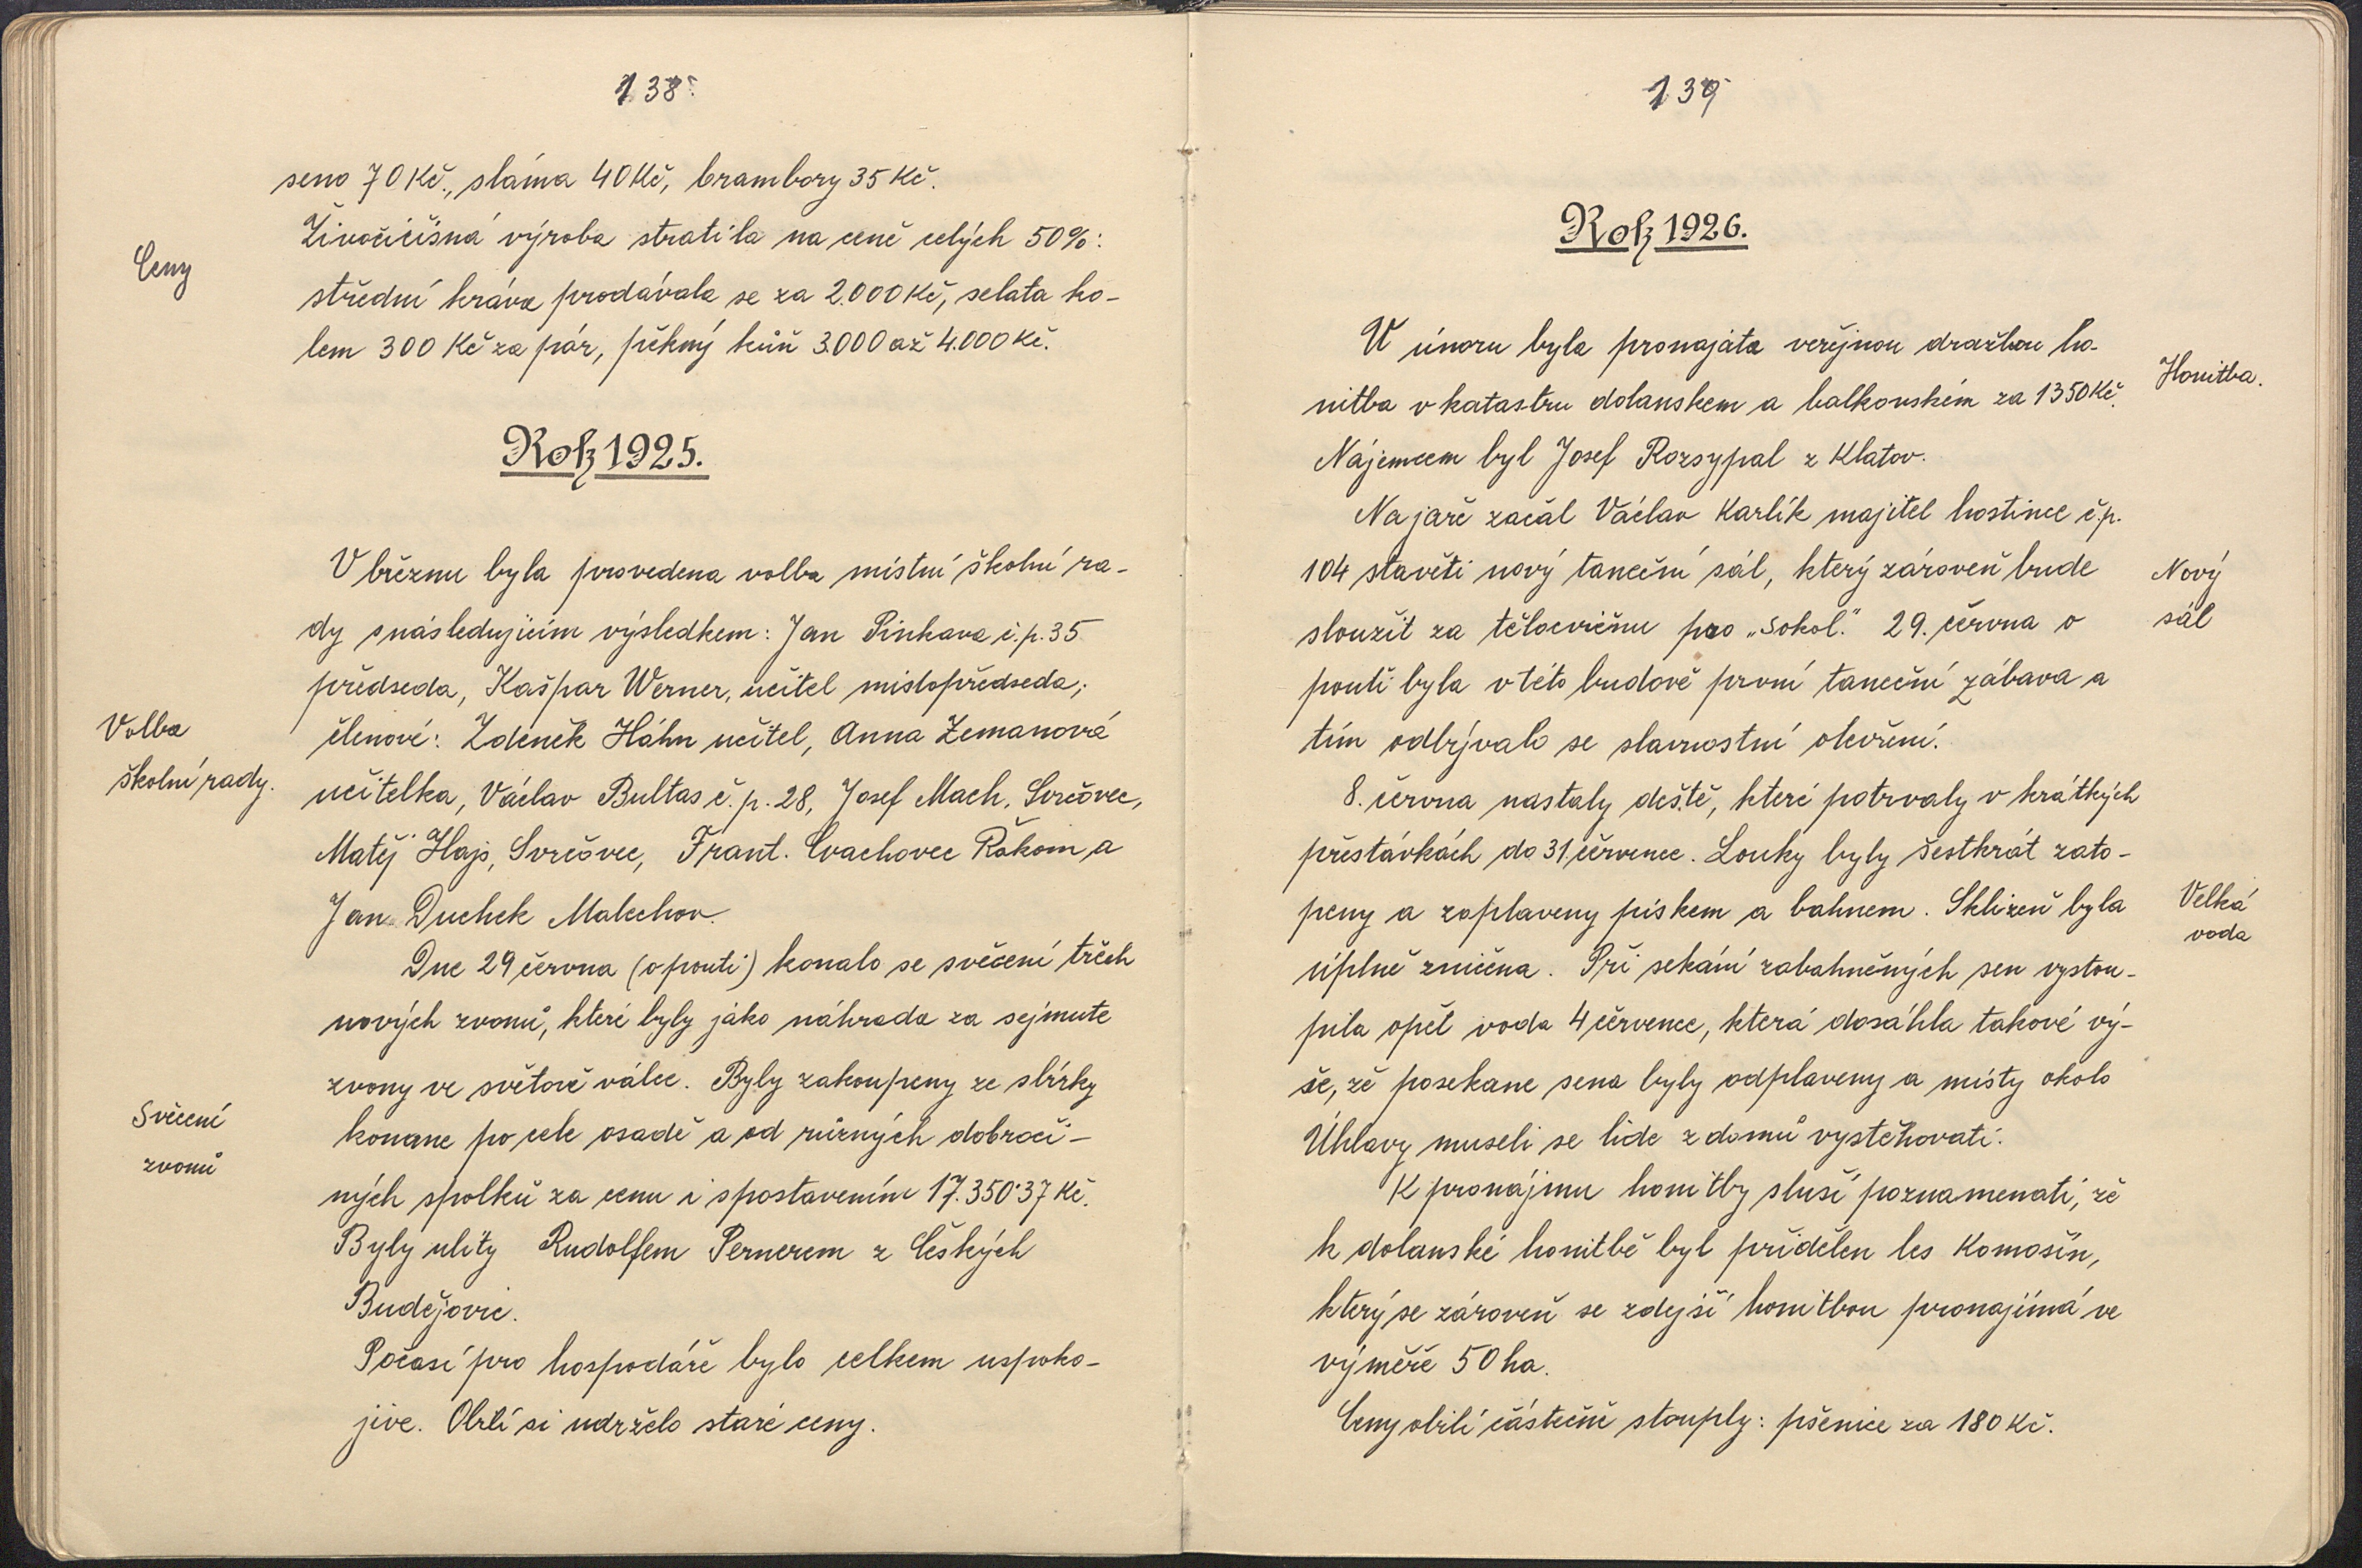 138
seno 70 Kč., sláma 40 Kč, brambory 35 Kč.
Živočičšná výroba stratila na ceně celých 50%:
Ceny
střední kráva prodávala se za 2.000 Kč, selata ko-
lem 300 Kč za pár, pěkný kůň 3.000 až 4.000 Kč.
Rok 1925.
V březnu byla provedena volba místní školní ra-
dy s následujícím výsledkem: Jan Pinkava č.p. 35
předseda, Kašpar Werner, učitel místopředseda,
Volba
školní rady.
členové: Zdeněk Háhn učitel, Anna Zemanová
učitelka, Václav Bultas č.p. 28, Josef Mach, Svrčovec,
Matěj Hajs, Svrčovec, Frant. Cvachovec Řakom a
Jan Duchek Malechov.
Dne 29 června (o pouti) konalo se svěcení třech
nových zvonů, které byly jako náhrada za sejmute
zvony ve světové válce. Byly zakoupeny ze sbírky
Svěcení
zvonů
konane po cele osadě a od různých dobroči-
ných spolků za cenu i spostavením 17.350·37 Kč.
Byly ulity Rudolfem Pernerem z Českých
Budějovic.
Počasí pro hospodáře bylo celkem uspoko-
jive. Obilí si udrželo staré ceny.
139
Rok 1926.
V únoru byla pronajata veřejnou dražbou ho-
nitba v katastru dolanskem a balkovském za 1350 Kč.
Honitba.
Nájemcem byl Josef Rozsypal z Klatov.
Na jaře začal Václav Karlík majitel hostince č.p.
104 stavěti nový taneční sál, který zároveň bude
Nový
sál
sloužit za tělocvičnu pro „Sokol." 29. června o
pouti byla v této budově první taneční zábava a
tím odbývalo se slavnostní otevření.
8. června nastaly deště, které potrvaly v krátkých
přestávkách do 31 července. Louky byly šestkrát zato-
peny a zaplaveny pískem a bahnem. Sklizeň byla
Velká
voda
úplně zničena. Při sekání zabahněných sen vystou-
pila opět voda 4 července, která dosáhla takové vý-
še, že posekane sena byly odplaveny a místy okolo
Úhlavy museli se lide z domů vystěhovati.
K pronájmu honitby sluší poznamenati, že
k dolanské honitbě byl přidělen les Komošín,
který se zároveň se zdejší honitbou pronajímá ve
výměře 50 ha.
Ceny obilí částečně stouply: pšenice za 180 Kč.